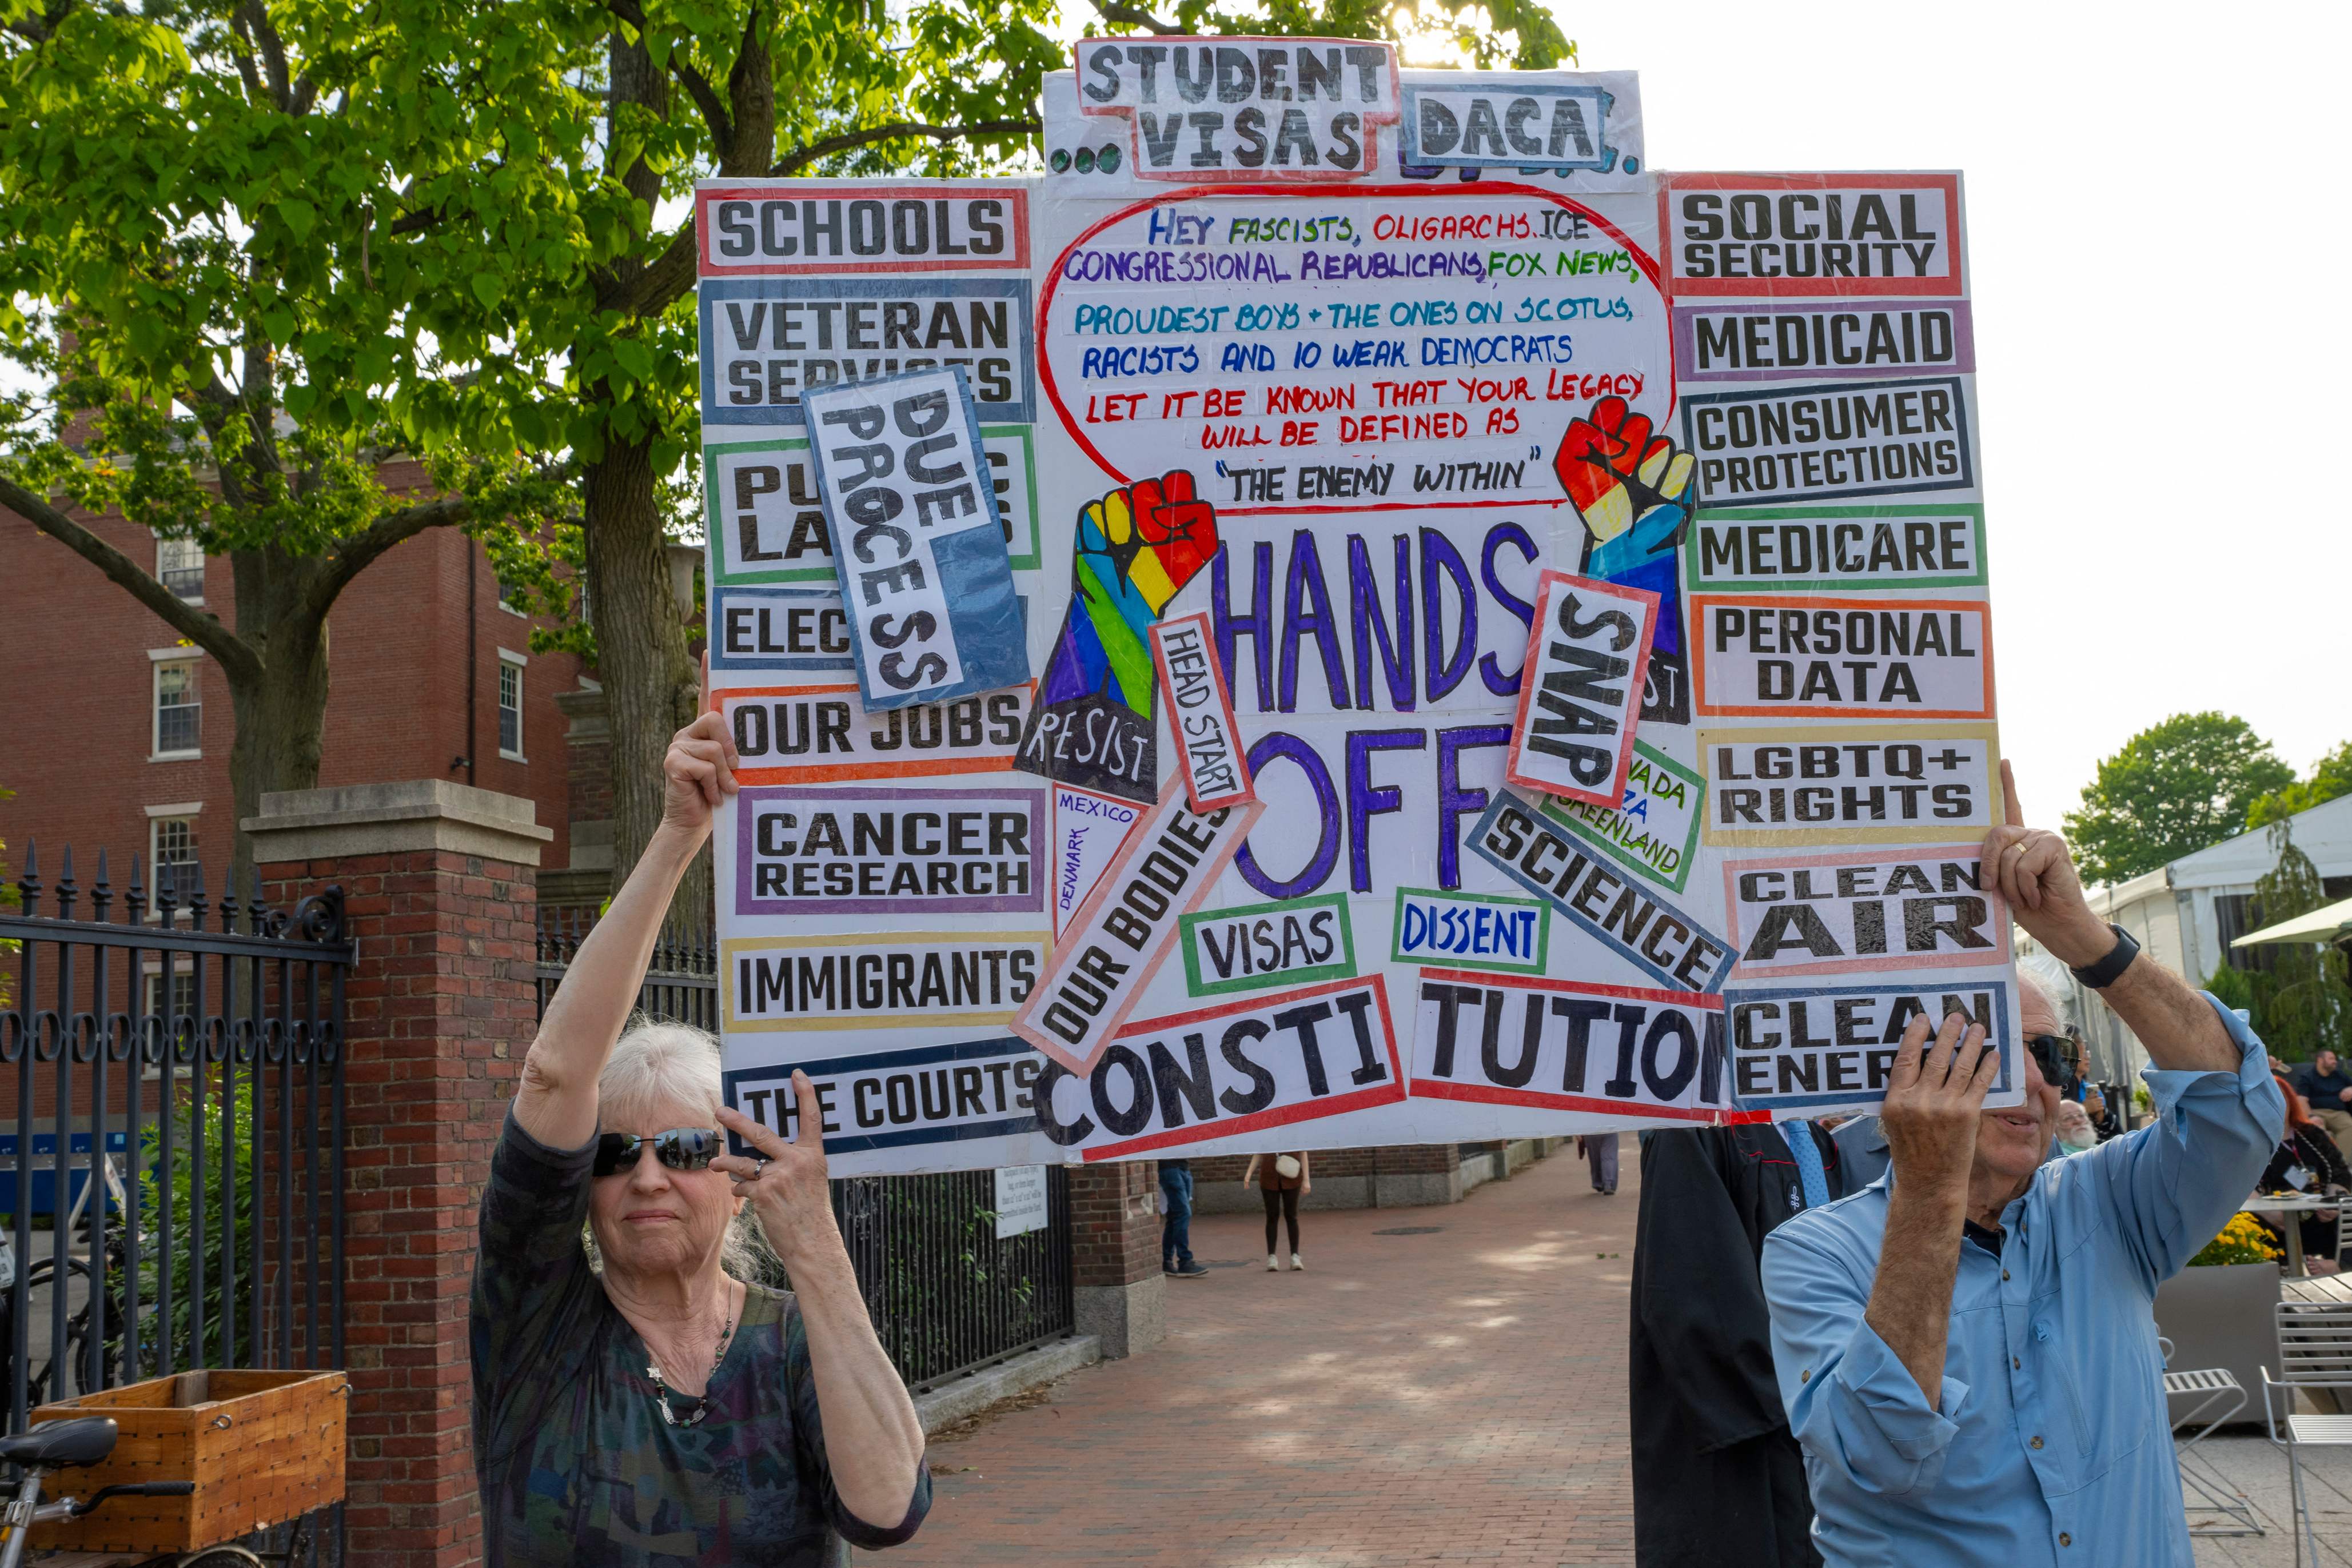 STUDENT
VISAS
...
DACA
SCHOOLS
VETERAN
SERVICES
DUE
PROCESS
PU
LA
ELEC
OUR JOBS
CANCER
RESEARCH
IMMIGRANTS
THE COURTS
HEY FASCISTS, OLIGARCHS. ICE
CONGRESSIONAL REPUBLICANS, FOX NEWS,
PROUDEST BOYS + THE ONES ON SCOTUS,
RACISTS AND 10 WEAK DEMOCRATS
LET IT BE KNOWN THAT YOUR LEGACY
WILL BE DEFINED AS
"THE ENEMY WITHIN"
HANDS
OFF
RESIST
ST
HEAD START
SNAP
MEXICO
DENMARK
NADA
ZA
GREENLAND
OUR BODIES
SCIENCE
VISAS
DISSENT
CONSTI
TUTION
SOCIAL
SECURITY
MEDICAID
CONSUMER
PROTECTIONS
MEDICARE
PERSONAL
DATA
LGBTQ+
RIGHTS
CLEAN
AIR
CLEAN
ENER